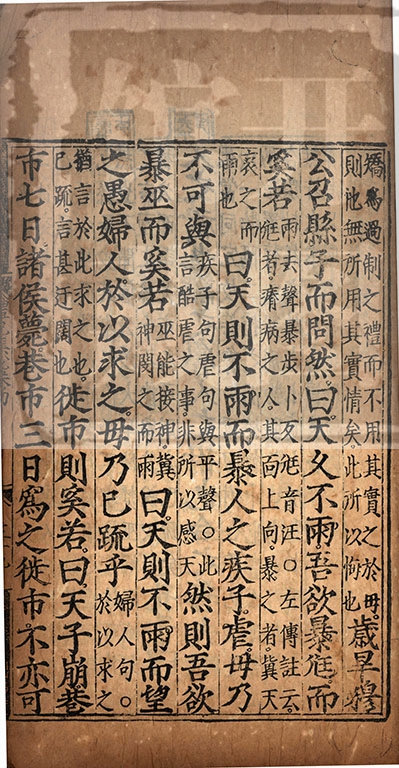 矯爲過制之禮而不用其實之於毋。
則他無所用其實情矣此所以悔也
歳旱穆
公召縣子而問然。曰。天久不雨吾欲暴尫。而
奚若
雨去聲暴步卜反尫音汪○左傳註云。
尫者瘠病之人。其面上向。暴之者。冀天
哀之而
雨也
曰天則不雨。而暴人之疾子。虐。毋乃
不可與
疾子句虐句與平聲。○此
言酷虐之事。非所以感天
然則吾欲
暴巫而奚若
巫能接神冀
神閔之而雨
曰。天則不雨而望
之愚婦人於以求之。毋乃已疏乎
婦人句。○
於以求之
猶言於此求之也。
已疏。言甚迂闊也。
徙市則奚若。曰天子崩巷
市七日。諸侯薨巷市三日。爲之徙市。不亦可